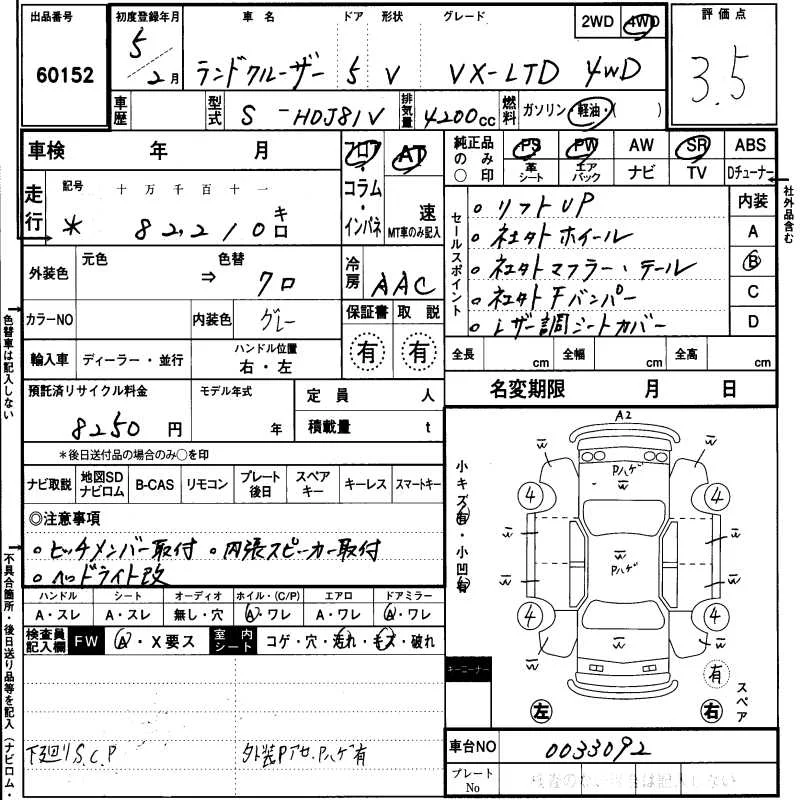 出品番号 初度登録年月 車名 ドア 形状 グレード 2WD 4WD 評価点
60152 5年2月 ランドクルーザー 5 V VX-LTD 4WD 3.5
車歴 型式 S-HDJ81V 排気量 4200cc 燃料 ガソリン・軽油・( )
車検 年 月 フロア・コラム・インパネ AT 速 MT車のみ記入
純正品のみ○印 PS PW AW SR ABS
革シート エアバック ナビ TV Dチューナー
社外品含む
走行 記号 十万千百十一
* 82,210 キロ
セールスポイント
。リフトUP
。社外ホイール
。社外マフラー、テール
。社外Fバンパー
。レザー調シートカバー
内装 A B C D
外装色 元色 ⇒ 色替 クロ 冷房 AAC
カラーNO 内装色 グレー 保証書 有 取説 有
輸入車 ディーラー・並行 ハンドル位置 右・左
全長 cm 全幅 cm 全高 cm
預託済リサイクル料金 8250円 モデル年式 年 定員 人
積載量 t
名変期限 月 日
*後日送付品の場合のみ○を印
ナビ取説 地図SDナビロム B-CAS リモコン プレート後日 スペアキー キーレス スマートキー
◎注意事項
。ヒッチメンバー取付 。内張スピーカー取付
。ヘッドライト改
ハンドル シート オーディオ ホイル・(C/P) エアロ ドアミラー
A・スレ A・スレ 無し・穴 A・ワレ A・ワレ A・ワレ
検査員記入欄 FW A・X要ス 室内シート コゲ・穴・汚れ・キズ・破れ
下廻りS.C.P 外装Pアセ、Pハゲ有
色替車は記入しない
不具合箇所・後日送り品等を記入(ナビロム・
小キズ有・小凹有
A2
W W
Pハゲ
W
4 4
W W
W
Pハゲ
W W
4 4
W W W
キーコーナー
有 スペア
左 右
車台NO 0033092
プレートNo